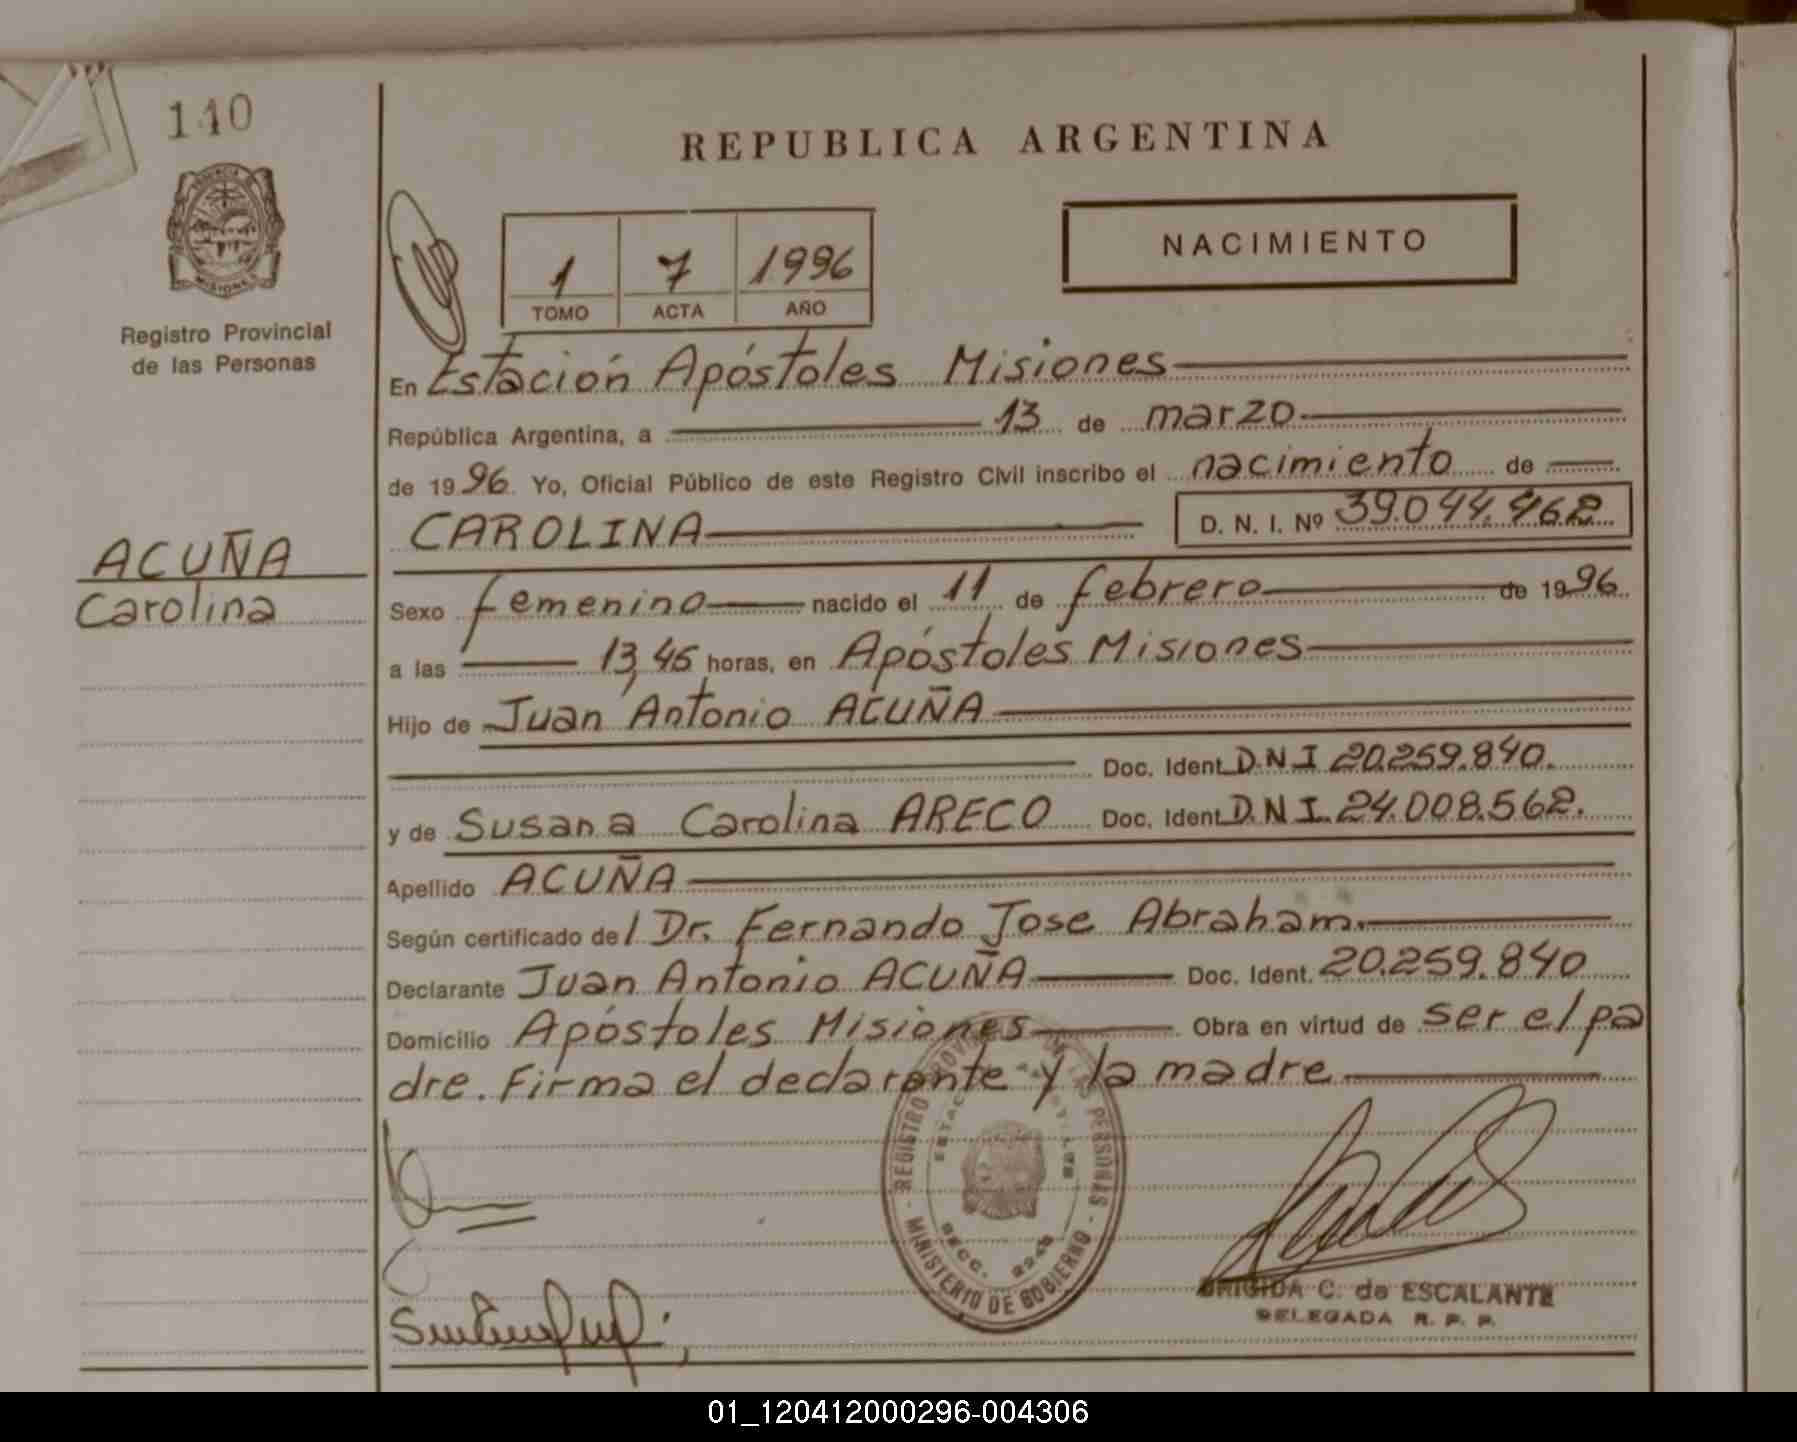 140
REPUBLICA ARGENTINA
PROVINCIA DE
MISIONES
Registro Provincial
de las Personas
1 7 1996
TOMO ACTA AÑO
NACIMIENTO
En Estación Apóstoles Misiones
República Argentina, a 13 de marzo
de 1996. Yo, Oficial Público de este Registro Civil inscribo el nacimiento de
CAROLINA D. N. I. Nº 39.044.462
ACUÑA
Carolina
Sexo femenino nacido el 11 de febrero de 1996
a las 13,45 horas, en Apóstoles Misiones
Hijo de Juan Antonio ACUÑA
Doc. Ident. D.N.I 20.259.840.
y de Susana Carolina ARECO Doc. Ident. D.N.I. 24.008.562.
Apellido ACUÑA
Según certificado del Dr. Fernando Jose Abraham.
Declarante Juan Antonio ACUÑA Doc. Ident. 20.259.840
Domicilio Apóstoles Misiones Obra en virtud de ser el pa
dre. Firma el declarante y la madre
REGISTRO PROVINCIAL DE LAS PERSONAS - MINISTERIO DE GOBIERNO -
BRIGIDA C. de ESCALANTE
DELEGADA R. P. P.
01_120412000296-004306